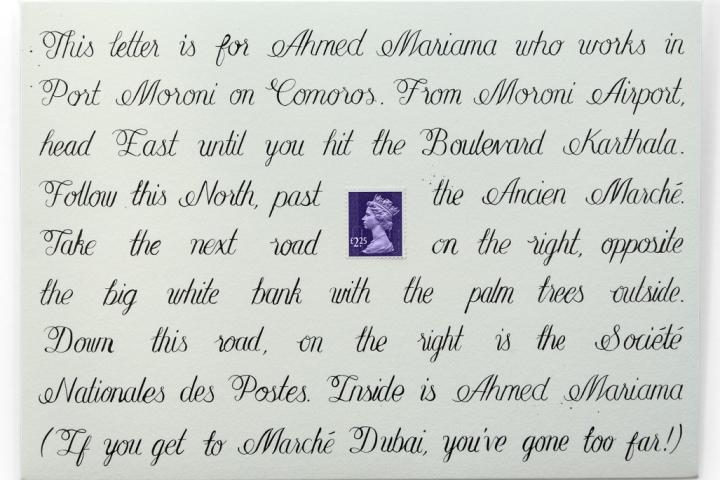 This letter is for Ahmed Mariama who works in
Port Moroni on Comoros. From Moroni Airport,
head East until you hit the Boulevard Karthala.
Follow this North, past the Ancien Marché.
£2.25
Take the next road on the right, opposite
the big white bank with the palm trees outside.
Down this road, on the right is the Société
Nationales des Postes. Inside is Ahmed Mariama
(If you get to Marché Dubai, you've gone too far!)